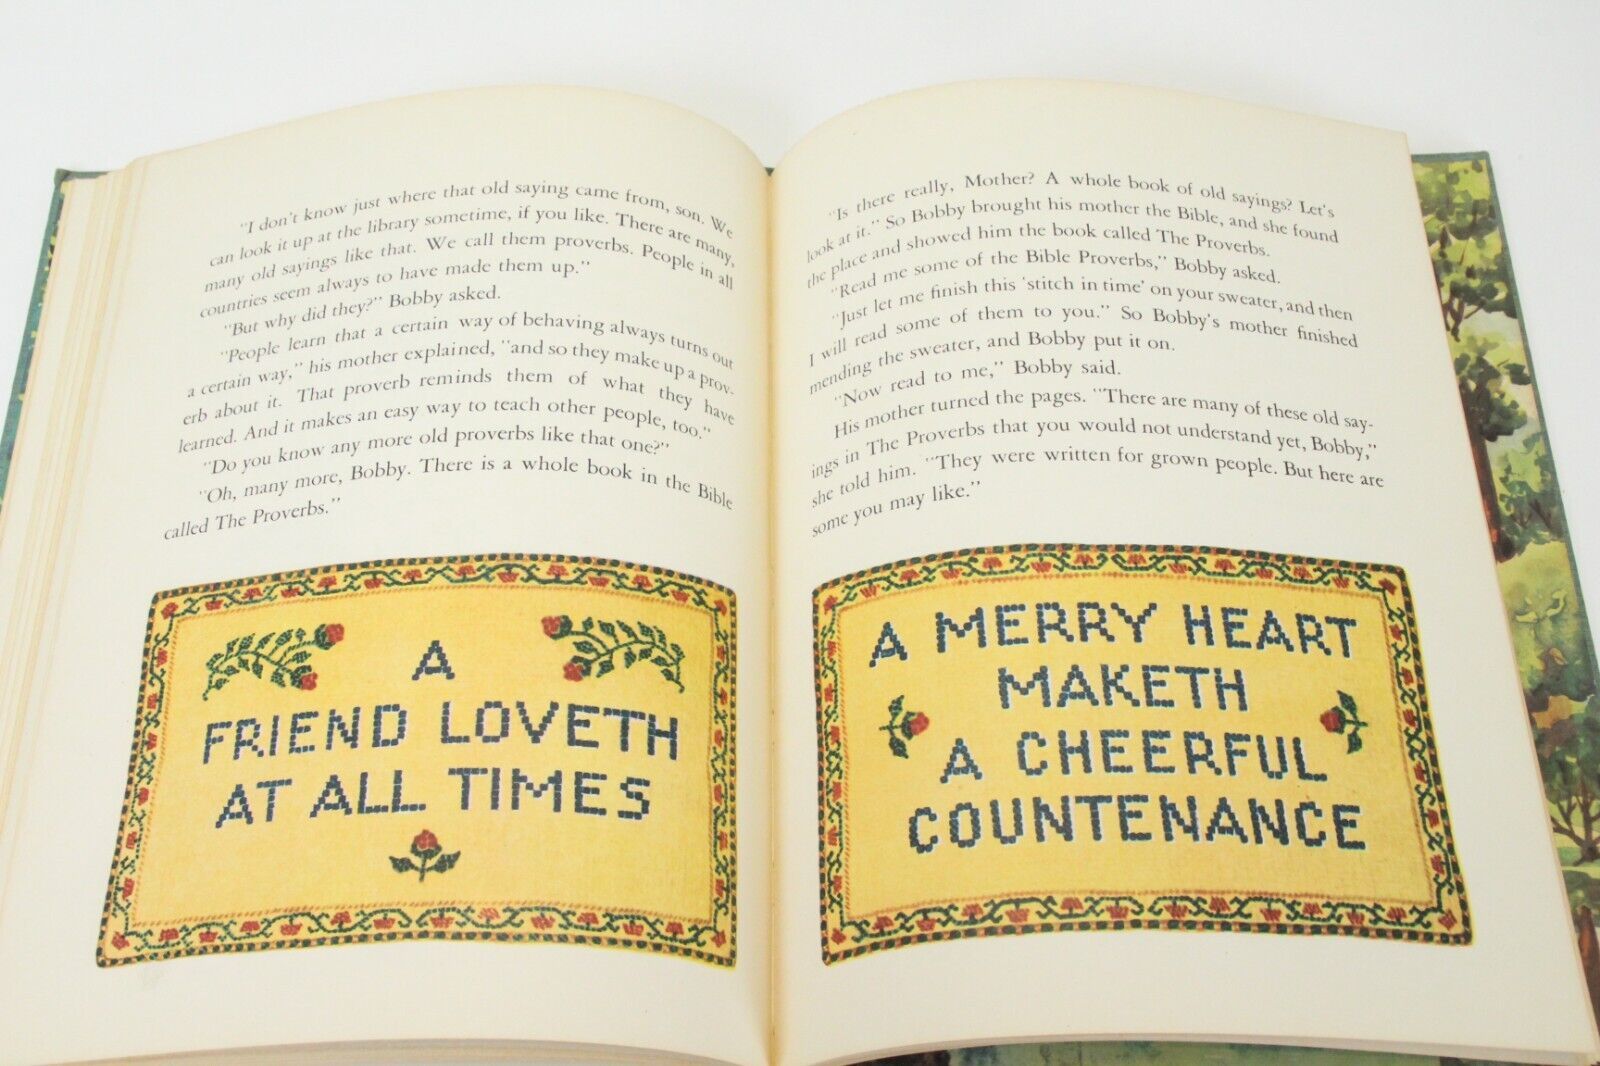 "I don't know just where that old saying came from, son. We
can look it up at the library sometime, if you like. There are many,
many old sayings like that. We call them proverbs. People in all
countries seem always to have made them up."
"But why did they?" Bobby asked.
"People learn that a certain way of behaving always turns out
a certain way," his mother explained, "and so they make up a prov-
erb about it. That proverb reminds them of what they have
learned. And it makes an easy way to teach other people, too."
"Do you know any more old proverbs like that one?"
"Oh, many more, Bobby. There is a whole book in the Bible
called The Proverbs."
A
FRIEND LOVETH
AT ALL TIMES
"Is there really, Mother? A whole book of old sayings? Let's
look at it." So Bobby brought his mother the Bible, and she found
the place and showed him the book called The Proverbs.
"Read me some of the Bible Proverbs," Bobby asked.
"Just let me finish this 'stitch in time' on your sweater, and then
I will read some of them to you." So Bobby's mother finished
mending the sweater, and Bobby put it on.
"Now read to me," Bobby said.
His mother turned the pages. "There are many of these old say-
ings in The Proverbs that you would not understand yet, Bobby,"
she told him. "They were written for grown people. But here are
some you may like."
A MERRY HEART
MAKETH
A CHEERFUL
COUNTENANCE